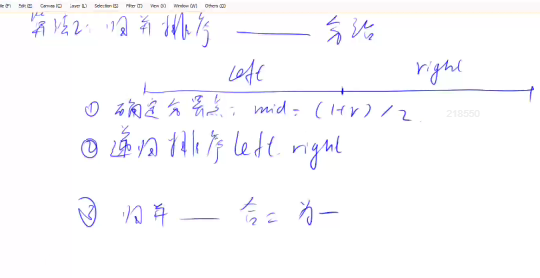 File (F) Edit (E) Canvas (C) Layer (L) Selection (S) Filter (T) View (V) Window (W) Other (O)
算法2: 归并排序 —— 分治
left right
① 确定分界点: mid = (l+r)/2
218550
② 递归排序 left. right
③ 归并 —— 合二为一